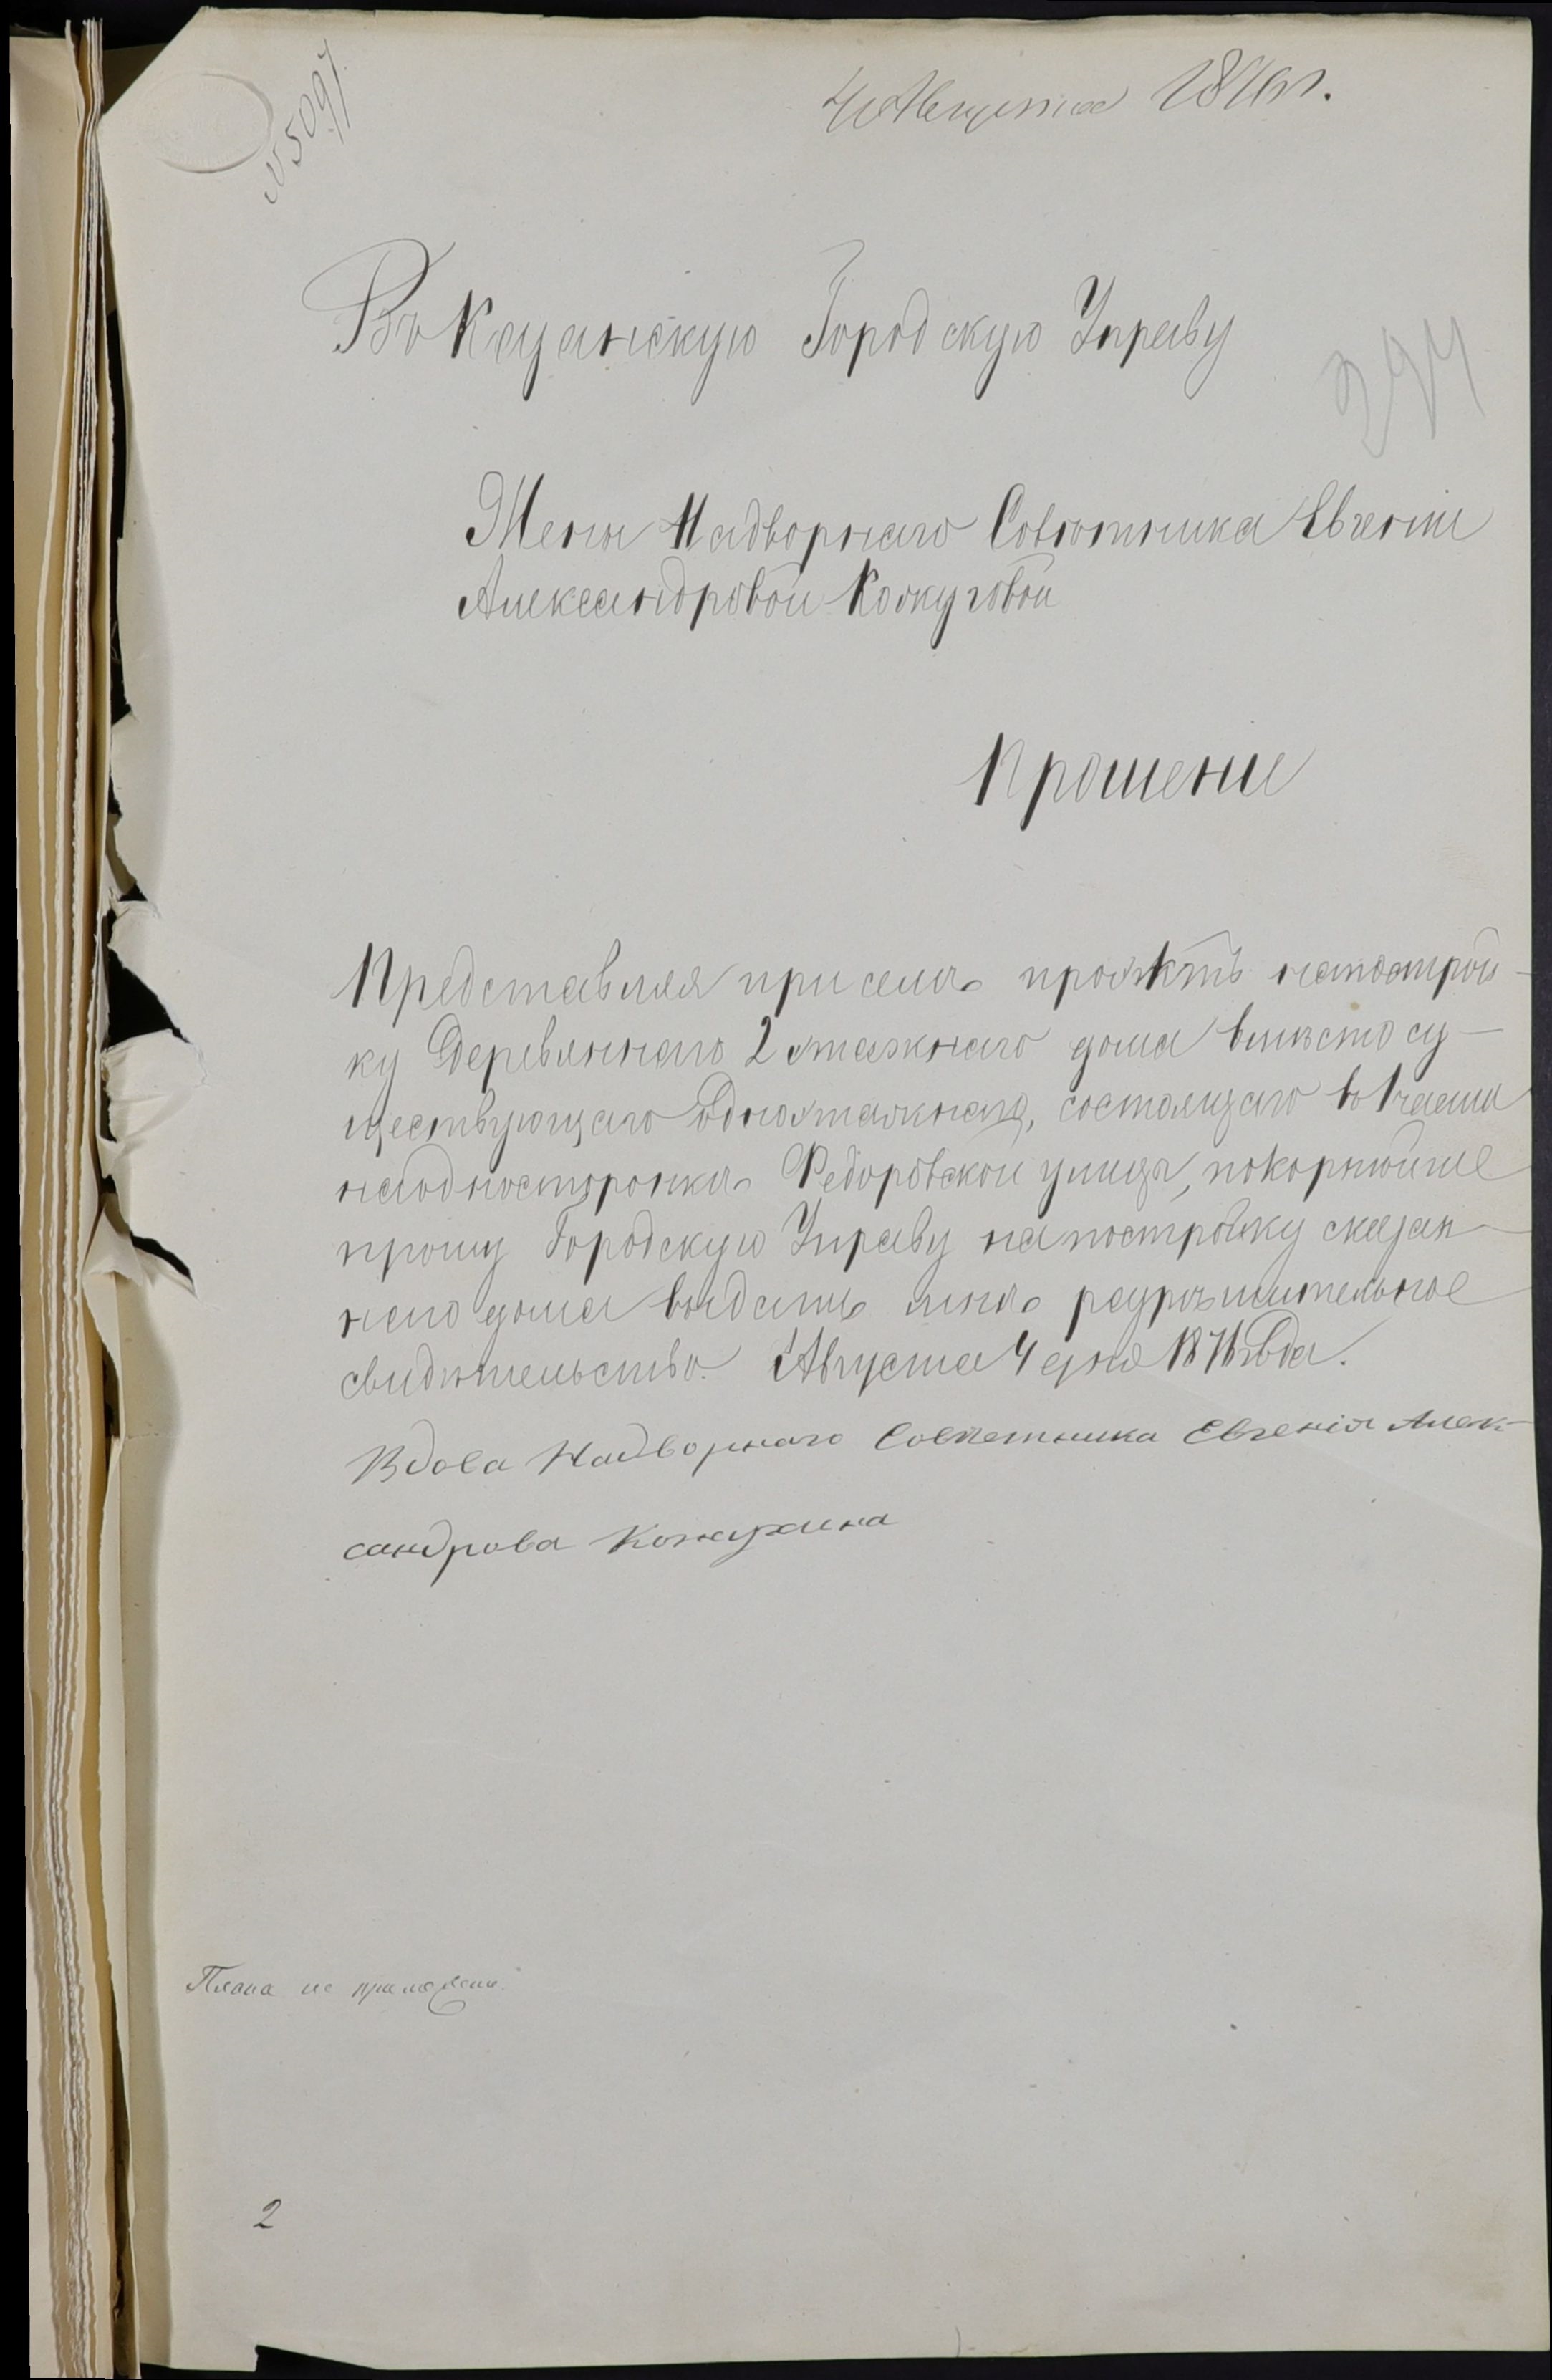 № 5097
4 Августа 1876 г.
Въ Казанскую Городскую Управу
294
Жены Надворнаго Совѣтника Евгеніи
Александровой
Прошеніе
Представляя при семъ проэктъ на построй-
ку деревяннаго 2 этажнаго дома вмѣсто су-
ществующаго одноэтажнаго, состоящаго въ 1 части
на односторонкѣ Федоровской улицы, покорнѣйше
прошу Городскую Управу на постройку сказан-
наго дома выдать мнѣ разрѣшительное
свидѣтельство. Августа 4 дня 1876 года.
Вдова Надворнаго Совѣтника Евгенія Алек-
сандрова
Плана не приложено
2